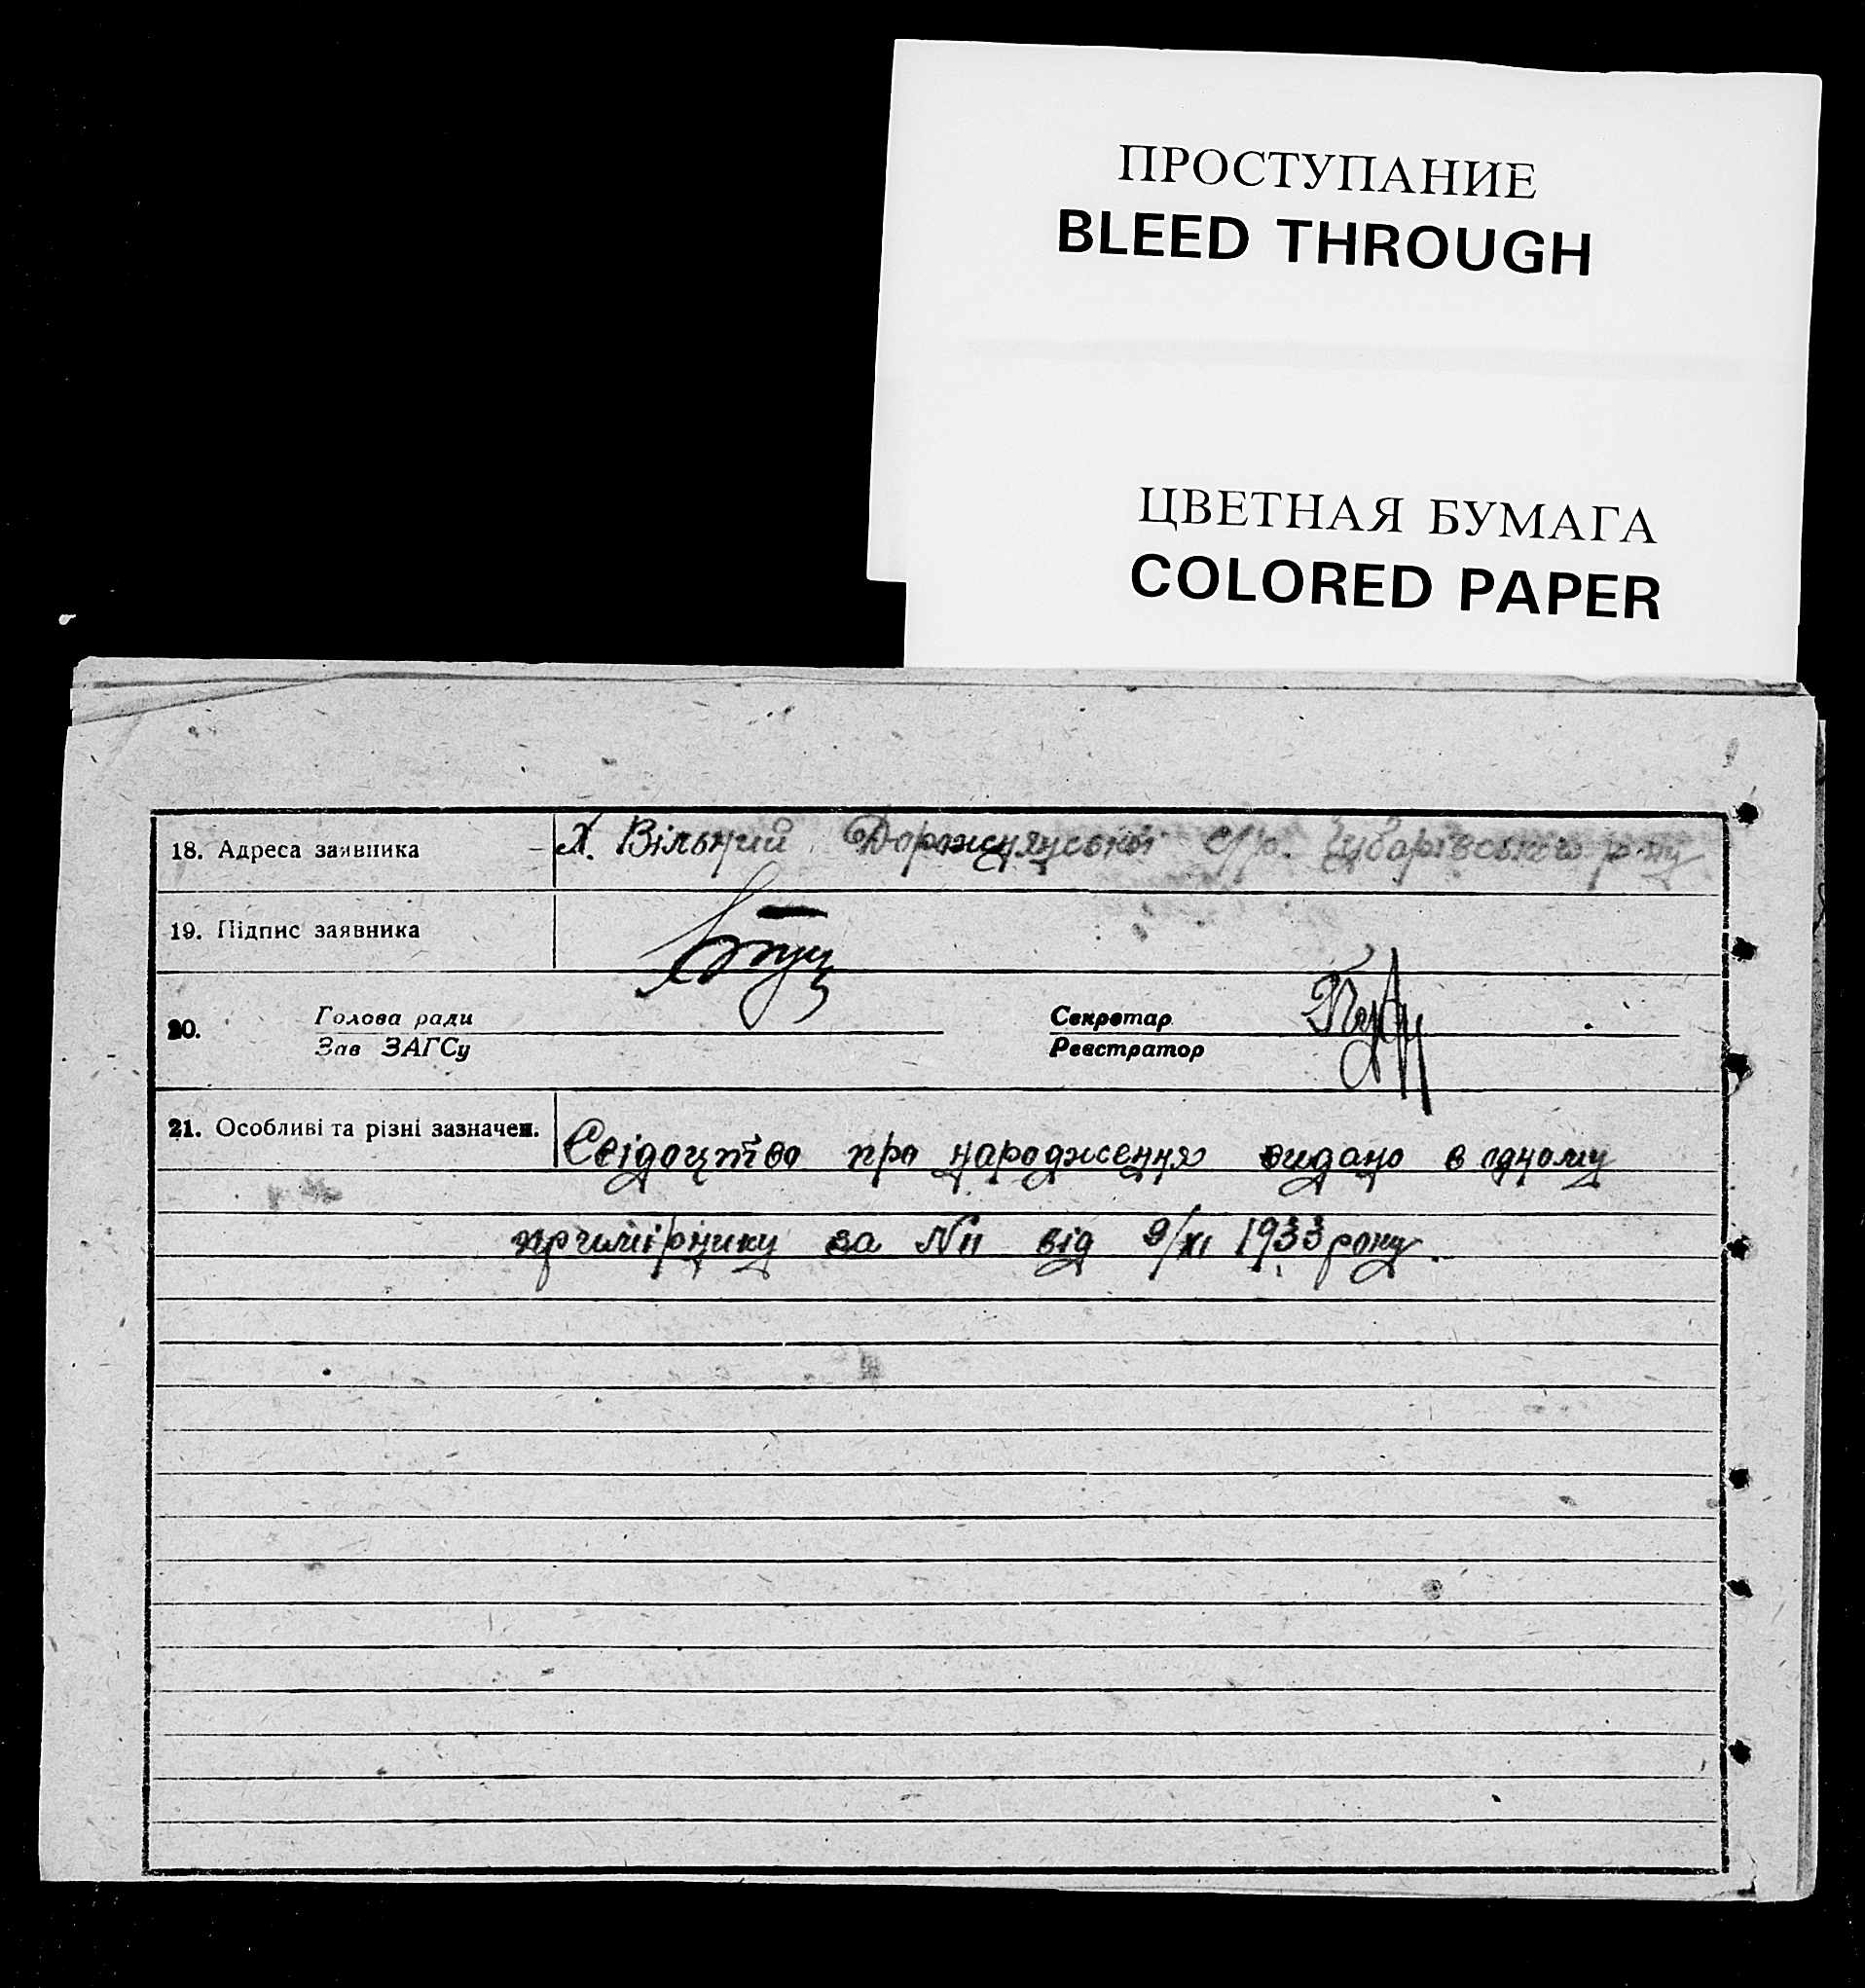 ПРОСТУПАНИЕ
BLEED THROUGH
ЦВЕТНАЯ БУМАГА
COLORED PAPER
18. Адреса заявника Х. Вільний Дорожнянської с/р. Чубарівського р-ну
19. Підпис заявника
20. Голова ради Секретар
Зав ЗАГСу Реєстратор
21. Особливі та різні зазначен. Свідоцтво про народження видано в одному
примірнику за № 11 від 9/XI 1933 року.